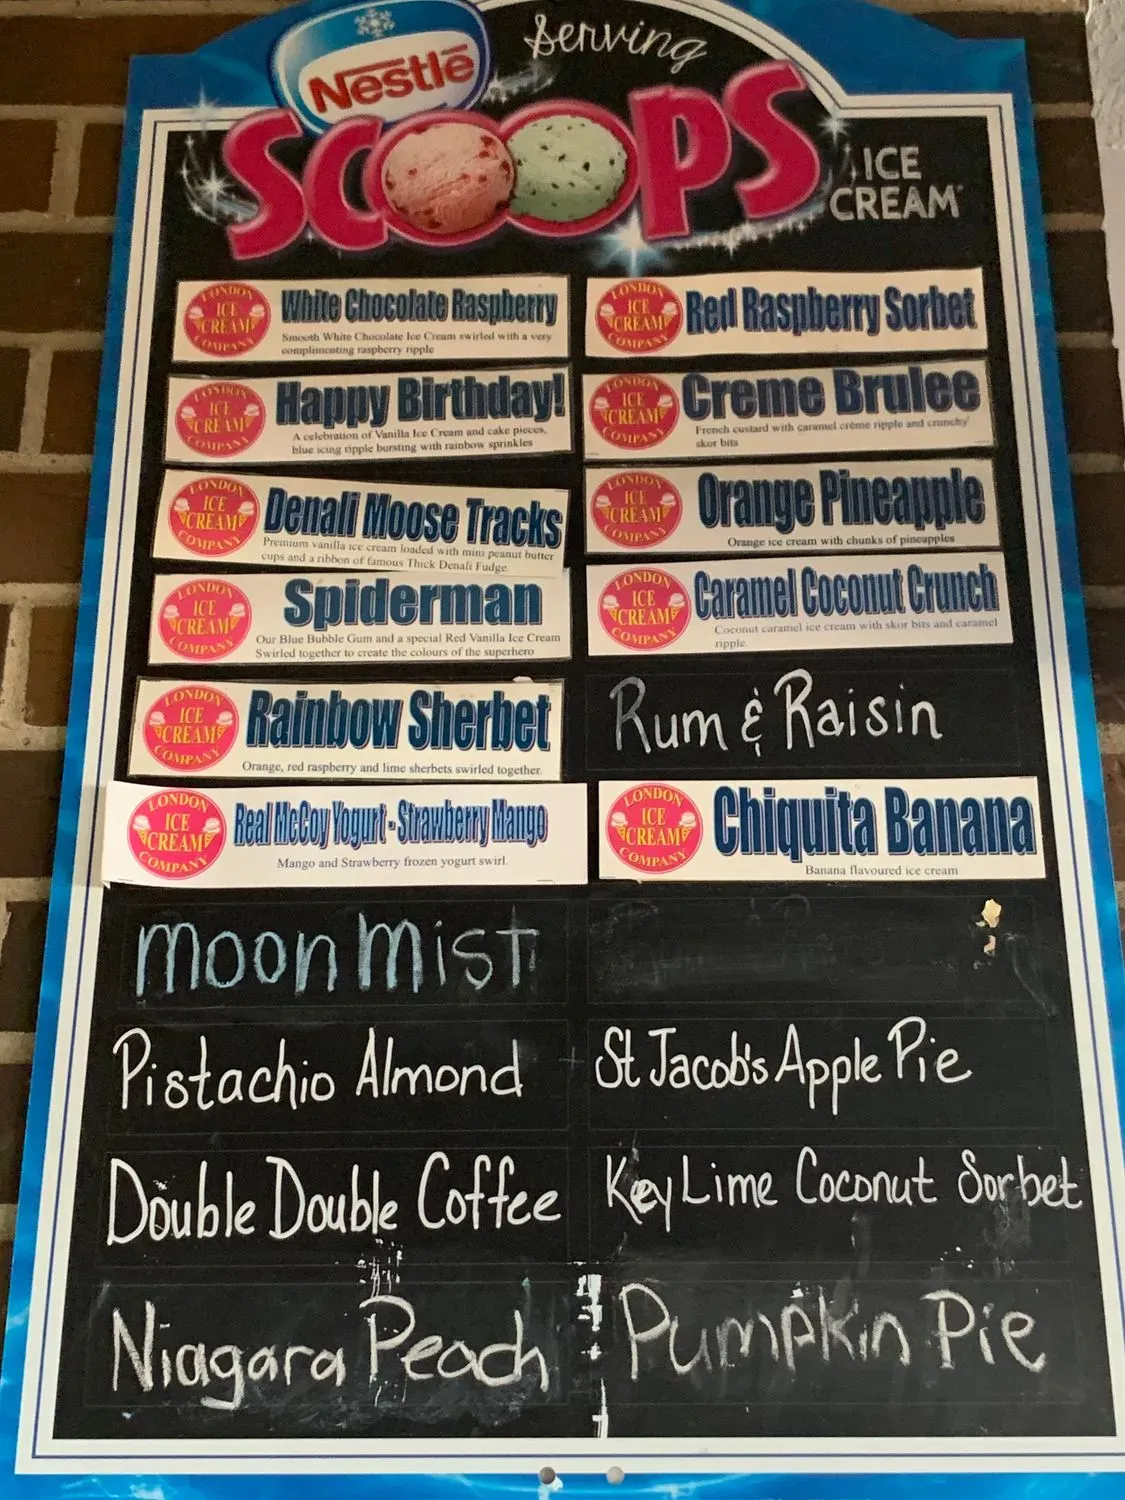 Nestlé
Serving
SCOOPS
ICE
CREAM
LONDON
ICE
CREAM
COMPANY
White Chocolate Raspberry
Smooth White Chocolate Ice Cream swirled with a very
complimenting raspberry ripple
LONDON
ICE
CREAM
COMPANY
Happy Birthday!
A celebration of Vanilla Ice Cream and cake pieces,
blue icing ripple bursting with rainbow sprinkles
LONDON
ICE
CREAM
COMPANY
Denali Moose Tracks
Premium vanilla ice cream loaded with mini peanut butter
cups and a ribbon of famous Thick Denali Fudge.
LONDON
ICE
CREAM
COMPANY
Spiderman
Our Blue Bubble Gum and a special Red Vanilla Ice Cream
Swirled together to create the colours of the superhero
LONDON
ICE
CREAM
COMPANY
Rainbow Sherbet
Orange, red raspberry and lime sherbets swirled together.
LONDON
ICE
CREAM
COMPANY
Real McCoy Yogurt - Strawberry Mango
Mango and Strawberry frozen yogurt swirl.
moon mist
Pistachio Almond
Double Double Coffee
Niagara Peach
LONDON
ICE
CREAM
COMPANY
Red Raspberry Sorbet
LONDON
ICE
CREAM
COMPANY
Creme Brulee
French custard with caramel crème ripple and crunchy
skor bits
LONDON
ICE
CREAM
COMPANY
Orange Pineapple
Orange ice cream with chunks of pineapples
LONDON
ICE
CREAM
COMPANY
Caramel Coconut Crunch
Coconut caramel ice cream with skor bits and caramel
ripple.
Rum & Raisin
LONDON
ICE
CREAM
COMPANY
Chiquita Banana
Banana flavoured ice cream
St Jacob's Apple Pie
Key Lime Coconut Sorbet
Pumpkin Pie